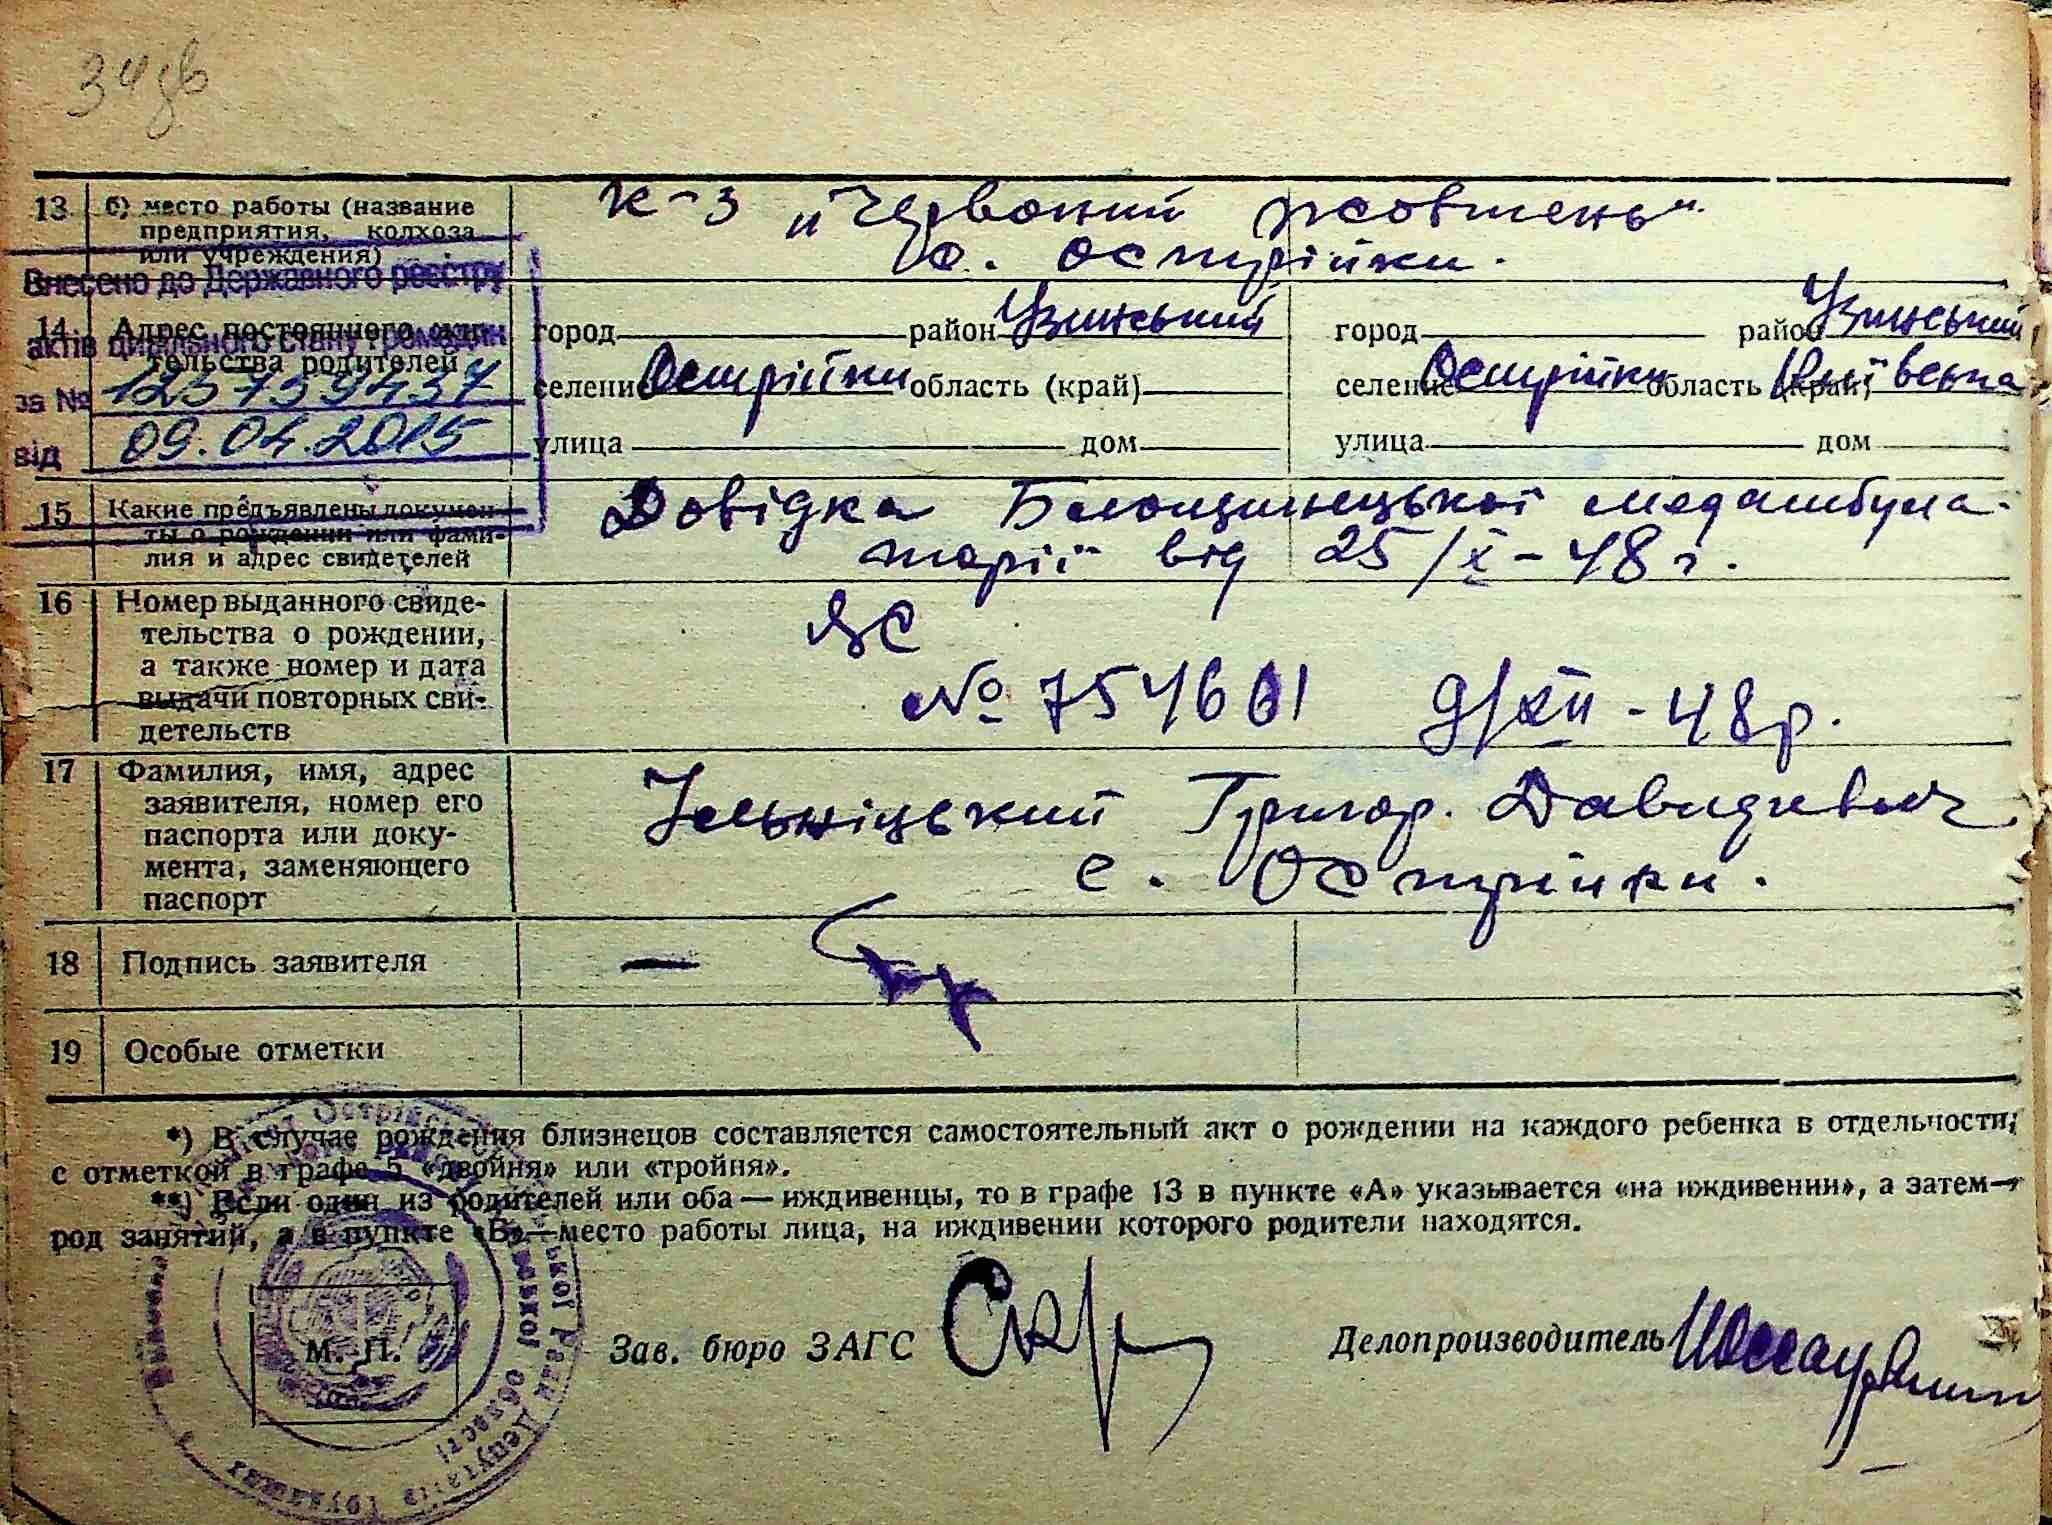 34 зв
13 б) место работы (название
предприятия, колхоза
или учреждения)
к-з „Червоний жовтень"
с. Острійки.
Внесено до Державного реєстру
актів цивільного стану громадян
за № 123759437
від 09.04.2015
14 Адрес постоянного жи-
тельства родителей
город район Узинський
селение Острійки область (край)
улица дом
город район Узинський
селение Острійки область (край) Київська
улица дом
15 Какие предъявлены докумен-
ты о рождении или фами-
лия и адрес свидетелей
Довідка медамбула-
торії від 25/X-48 г.
16 Номер выданного свиде-
тельства о рождении,
а также номер и дата
выдачи повторных сви-
детельств
ЯС
№ 754601 9/XII-48р.
17 Фамилия, имя, адрес
заявителя, номер его
паспорта или доку-
мента, заменяющего
паспорт
Ільніцький Григор. Давидович
с. Острійки.
18 Подпись заявителя —
19 Особые отметки
*) В случае рождения близнецов составляется самостоятельный акт о рождении на каждого ребенка в отдельности,
с отметкой в графе 5 «двойня» или «тройня».
**) Если один из родителей или оба — иждивенцы, то в графе 13 в пункте «А» указывается «на иждивении», а затем—
род занятий, а в пункте «В»—место работы лица, на иждивении которого родители находятся.
М. П.
Зав. бюро ЗАГС
Делопроизводитель